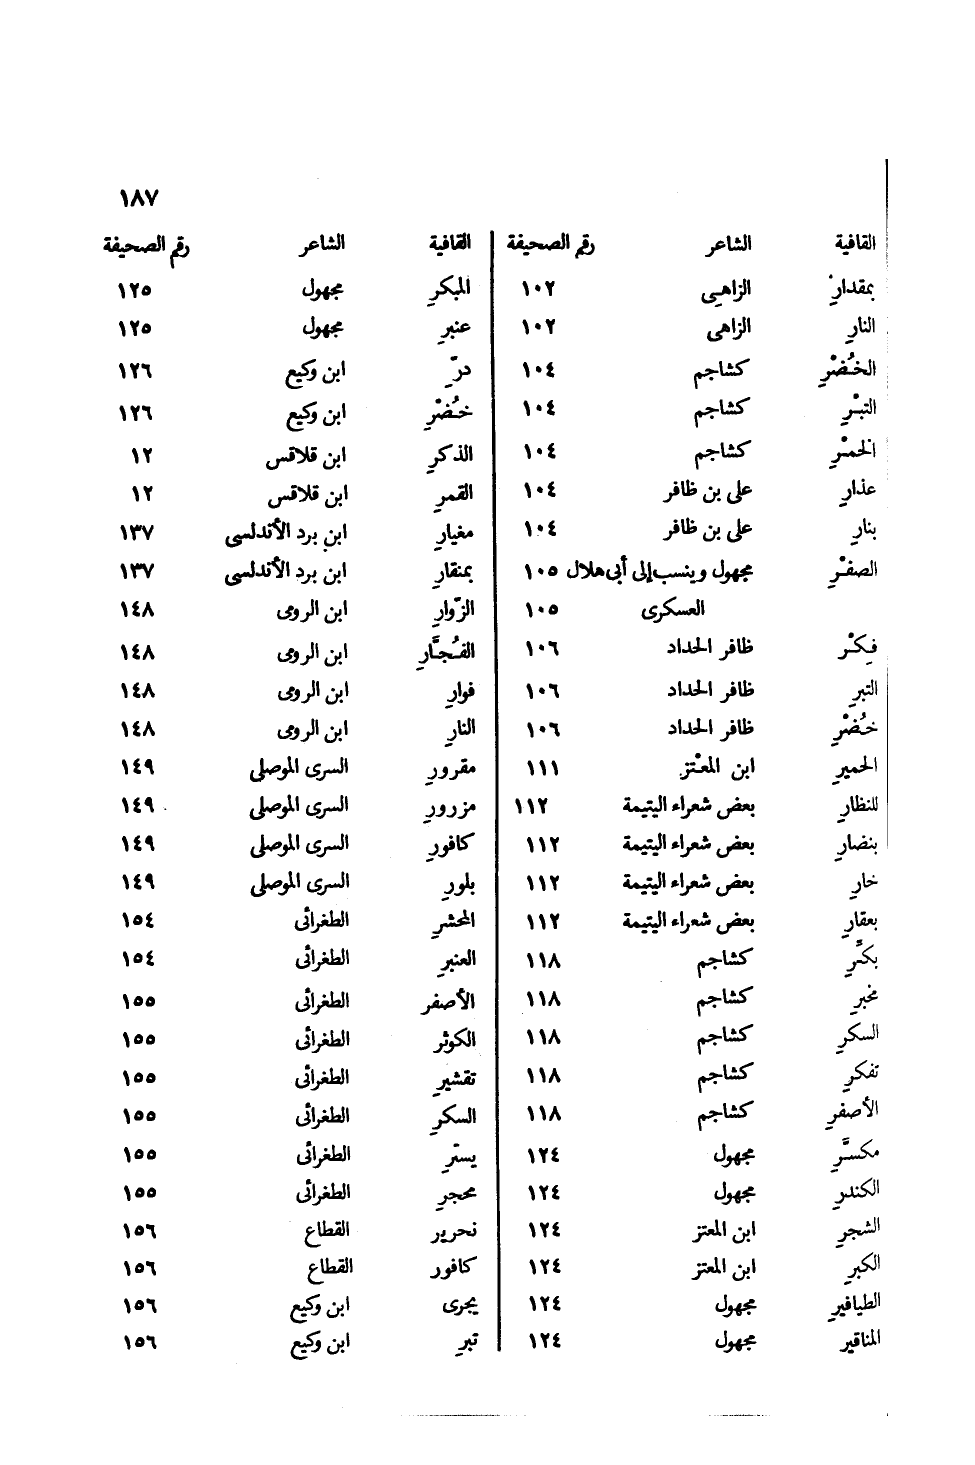 ١٨٧
القافية الشاعر رقم الصحيفة
بمقدارٍ الزاهى ١٠٢
النارِ الزاهى ١٠٢
الخُضْرِ كشاجم ١٠٤
التبْرِ كشاجم ١٠٤
الخمْرِ كشاجم ١٠٤
عذارِ على بن ظافر ١٠٤
بنارِ على بن ظافر ١٠٤
الصفْرِ مجهول وينسب إلى أبى هلال ١٠٥
العسكرى ١٠٥
فِكْر ظافر الحداد ١٠٦
التبرِ ظافر الحداد ١٠٦
خُضْرِ ظافر الحداد ١٠٦
الحميرِ ابن المعْتز ١١١
للنظارِ بعض شعراء اليتيمة ١١٢
بنضارِ بعض شعراء اليتيمة ١١٢
خارِ بعض شعراء اليتيمة ١١٢
بعقارِ بعض شعراء اليتيمة ١١٢
بكَّرِ كشاجم ١١٨
مخبرِ كشاجم ١١٨
السكرِ كشاجم ١١٨
تفكرِ كشاجم ١١٨
الأصفرِ كشاجم ١١٨
مكسَّرِ مجهول ١٢٤
الكندرِ مجهول ١٢٤
الشجرِ ابن المعتز ١٢٤
الكبرِ ابن المعتز ١٢٤
الطيافيرِ مجهول ١٢٤
المناقيرِ مجهول ١٢٤
القافية الشاعر رقم الصحيفة
المبكرِ مجهول ١٢٥
عنبرِ مجهول ١٢٥
درّ ابن وكيع ١٢٦
خُضْرِ ابن وكيع ١٢٦
الذكرِ ابن قلاقس ١٢
القمرِ ابن قلاقس ١٢
مغيارِ ابن برد الأندلسى ١٣٧
بمنقارِ ابن برد الأندلسى ١٣٧
الزّوارِ ابن الرومى ١٤٨
الفُجَّارِ ابن الرومى ١٤٨
فوارِ ابن الرومى ١٤٨
النارِ ابن الرومى ١٤٨
مقرورِ السرى الموصلى ١٤٩
مزرورِ السرى الموصلى ١٤٩
كافورِ السرى الموصلى ١٤٩
بلورِ السرى الموصلى ١٤٩
المحشرِ الطغرائى ١٥٤
العنبرِ الطغرائى ١٥٤
الأصفر الطغرائى ١٥٥
الكوثر الطغرائى ١٥٥
تقشيرِ الطغرائى ١٥٥
السكرِ الطغرائى ١٥٥
يسترِ الطغرائى ١٥٥
محجرِ الطغرائى ١٥٥
نحرير القطاع ١٥٦
كافور القطاع ١٥٦
يجرى ابن وكيع ١٥٦
تبرِ ابن وكيع ١٥٦